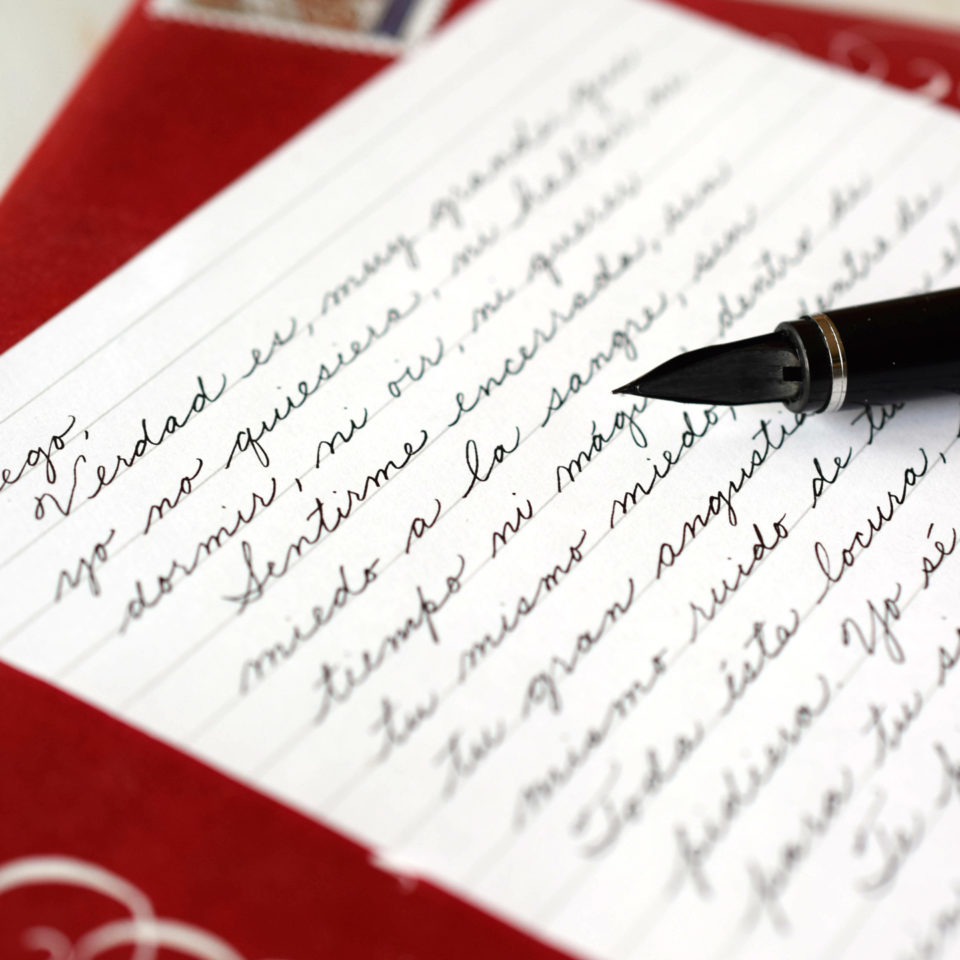 ego,
Verdad es, muy grande, que
yo no quisiera, ni hablar, ni
dormir, ni oir, ni querer
Sentirme encerrada, sin
miedo a la sangre, sin
tiempo ni mági dentro de
tu mismo miedo, dentro de
tu gran angustia
mismo ruido de tu
Toda ésta locura,
pidiera. Yo sé
para tu
Te